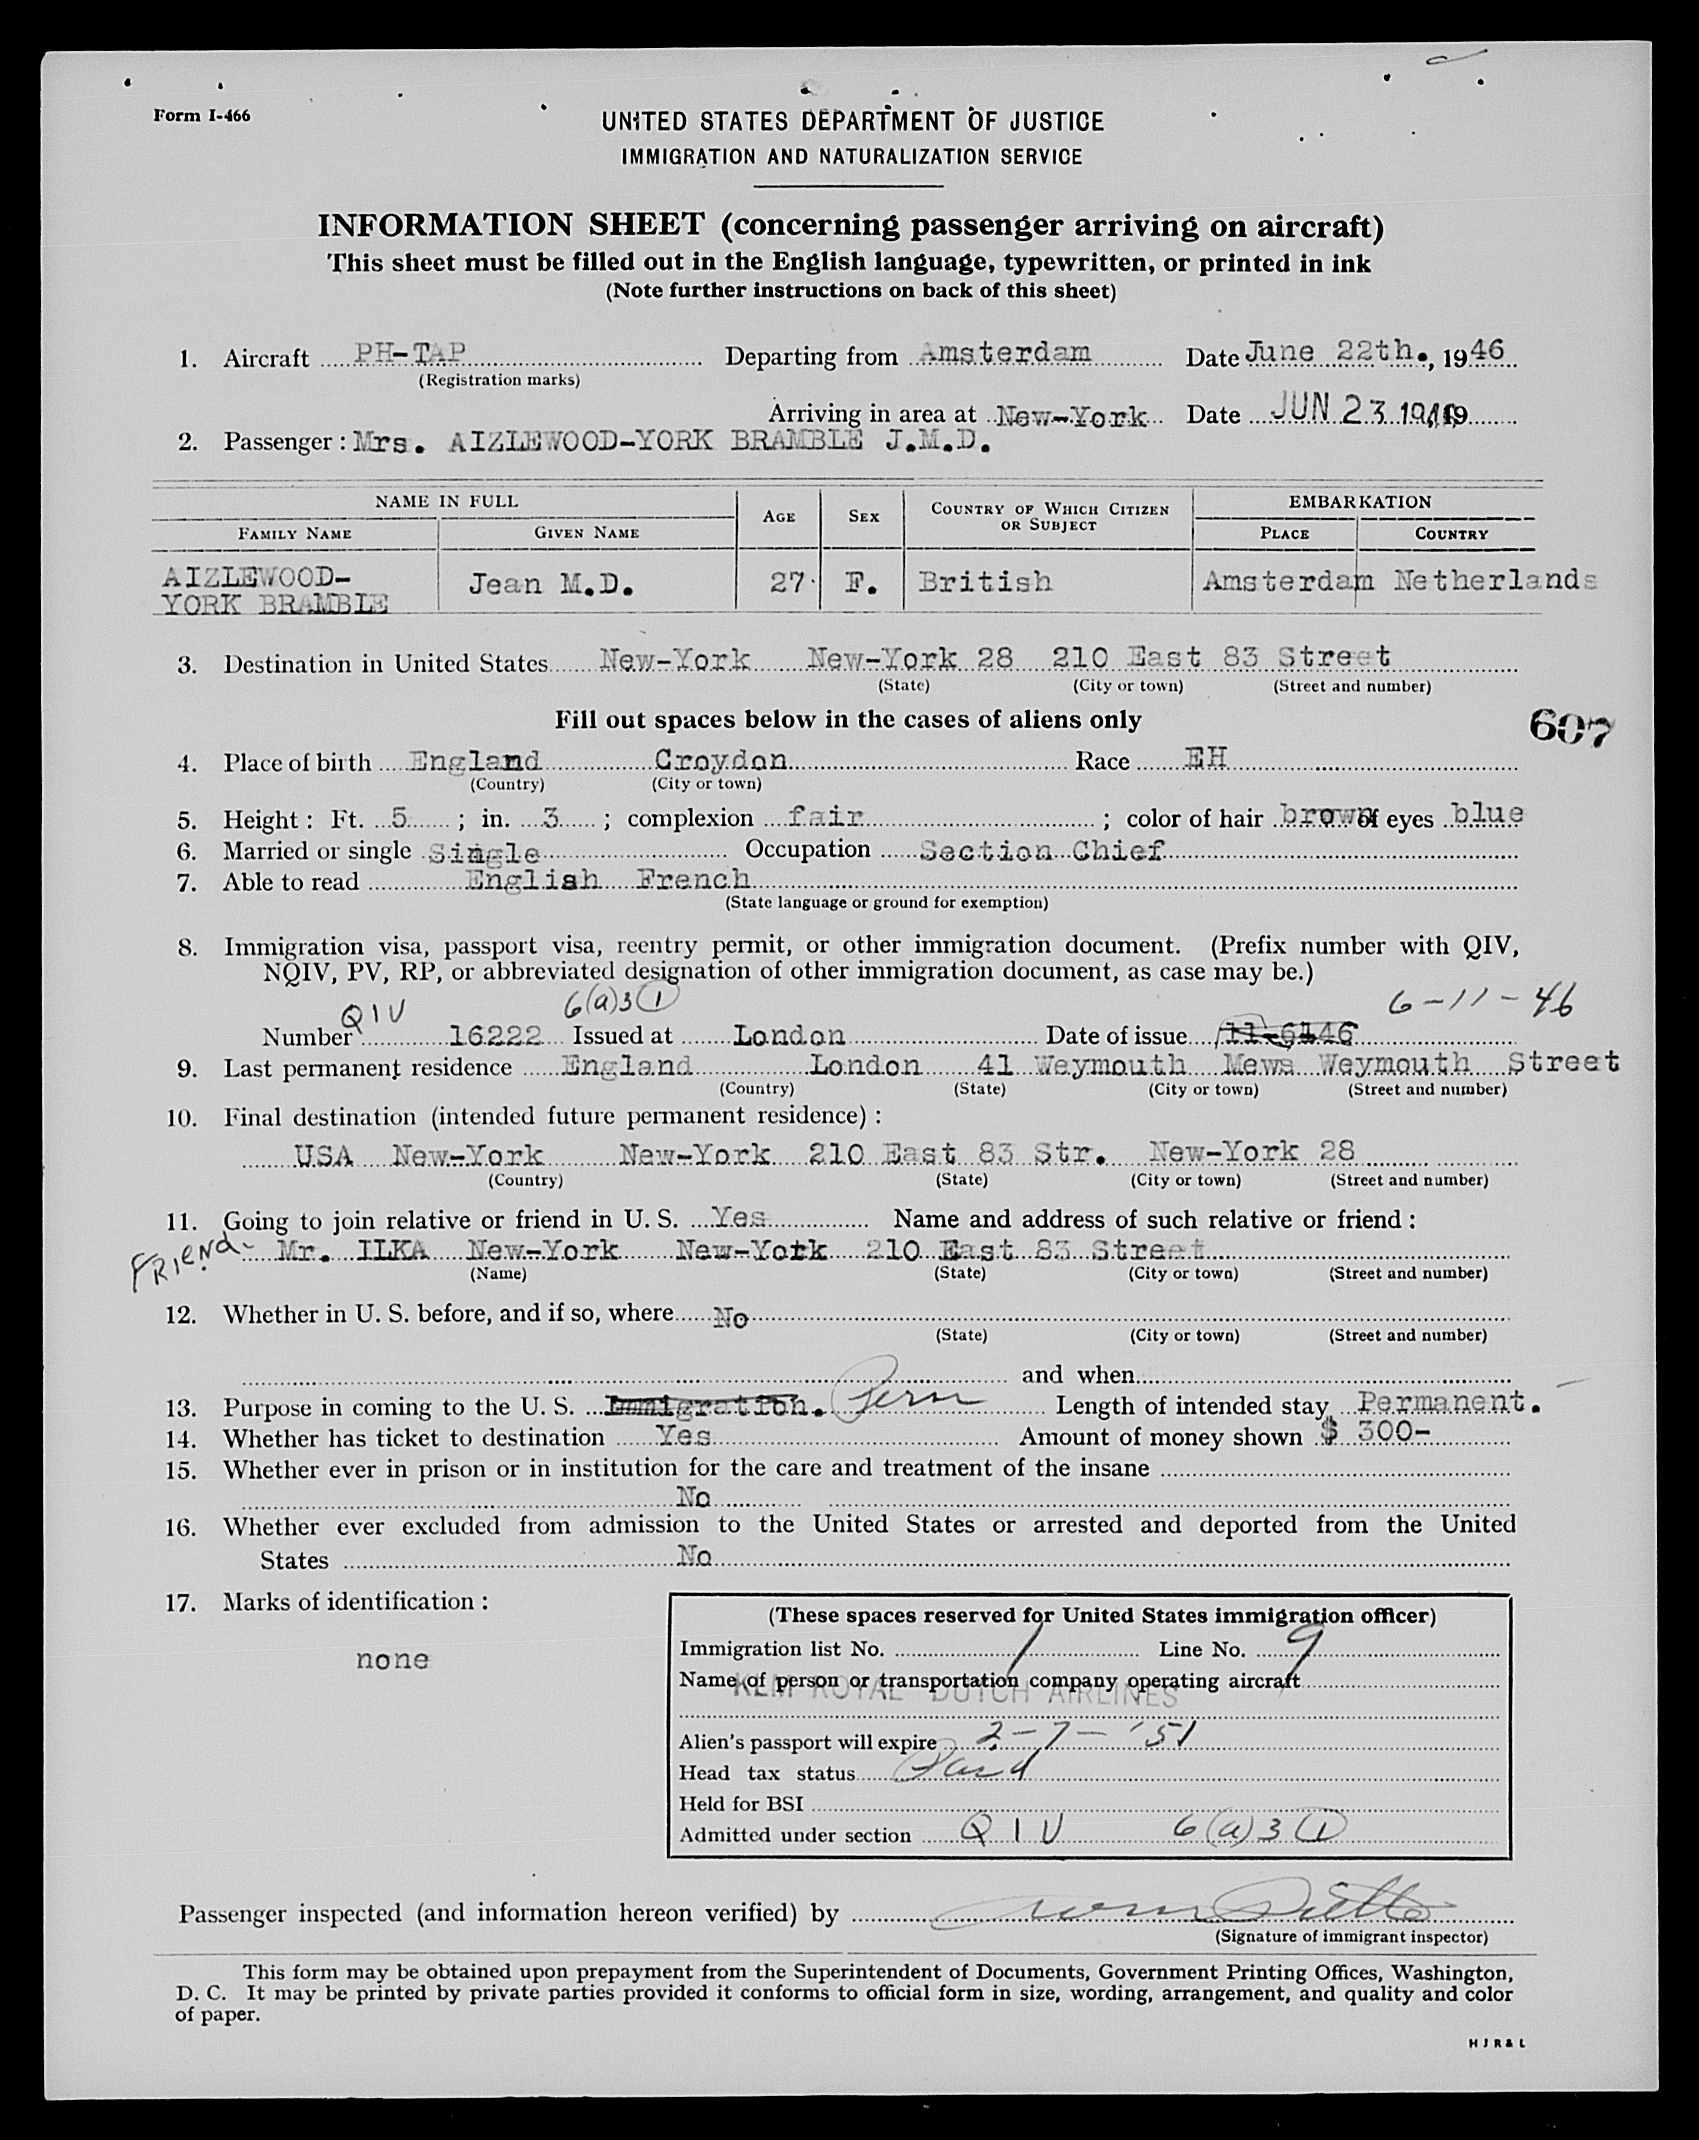 Form I-466
UNITED STATES DEPARTMENT OF JUSTICE
IMMIGRATION AND NATURALIZATION SERVICE
INFORMATION SHEET (concerning passenger arriving on aircraft)
This sheet must be filled out in the English language, typewritten, or printed in ink
(Note further instructions on back of this sheet)
1. Aircraft PH-TAP Departing from Amsterdam Date June 22th., 1946
(Registration marks)
Arriving in area at New-York Date JUN 23 1946 19
2. Passenger: Mrs. AIZLEWOOD-YORK BRAMBLE J.M.D.
NAME IN FULL EMBARKATION
FAMILY NAME GIVEN NAME AGE SEX COUNTRY OF WHICH CITIZEN OR SUBJECT PLACE COUNTRY
AIZLEWOOD-
YORK BRAMBLE Jean M.D. 27 F. British Amsterdam Netherlands
3. Destination in United States New-York New-York 28 210 East 83 Street
(State) (City or town) (Street and number)
Fill out spaces below in the cases of aliens only
607
4. Place of birth England Croydon Race EH
(Country) (City or town)
5. Height: Ft. 5; in. 3; complexion fair; color of hair brown of eyes blue
6. Married or single Single Occupation Section Chief
7. Able to read English French
(State language or ground for exemption)
8. Immigration visa, passport visa, reentry permit, or other immigration document. (Prefix number with QIV,
NQIV, PV, RP, or abbreviated designation of other immigration document, as case may be.)
QIV 6(a)3(1) 6-11-46
Number 16222 Issued at London Date of issue 11-6146
9. Last permanent residence England London 41 Weymouth Mews Weymouth Street
(Country) (State) (City or town) (Street and number)
10. Final destination (intended future permanent residence):
USA New-York New-York 210 East 83 Str. New-York 28
(Country) (State) (City or town) (Street and number)
11. Going to join relative or friend in U. S. Yes Name and address of such relative or friend:
FRIEND- Mr. ILKA New-York New-Yotk 210 East 83 Street
(Name) (State) (City or town) (Street and number)
12. Whether in U. S. before, and if so, where No
(State) (City or town) (Street and number)
and when
13. Purpose in coming to the U. S. Immigration. Perm Length of intended stay Permanent.
14. Whether has ticket to destination Yes Amount of money shown $ 300-
15. Whether ever in prison or in institution for the care and treatment of the insane
No
16. Whether ever excluded from admission to the United States or arrested and deported from the United
States No
17. Marks of identification:
none
(These spaces reserved for United States immigration officer)
Immigration list No. 1 Line No. 9
Name of person or transportation company operating aircraft
KLM ROYAL DUTCH AIRLINES
Alien's passport will expire 2-7-'51
Head tax status Paid
Held for BSI
Admitted under section QIV 6(a)3(1)
Passenger inspected (and information hereon verified) by
(Signature of immigrant inspector)
This form may be obtained upon prepayment from the Superintendent of Documents, Government Printing Offices, Washington,
D. C. It may be printed by private parties provided it conforms to official form in size, wording, arrangement, and quality and color
of paper.
H J R & L